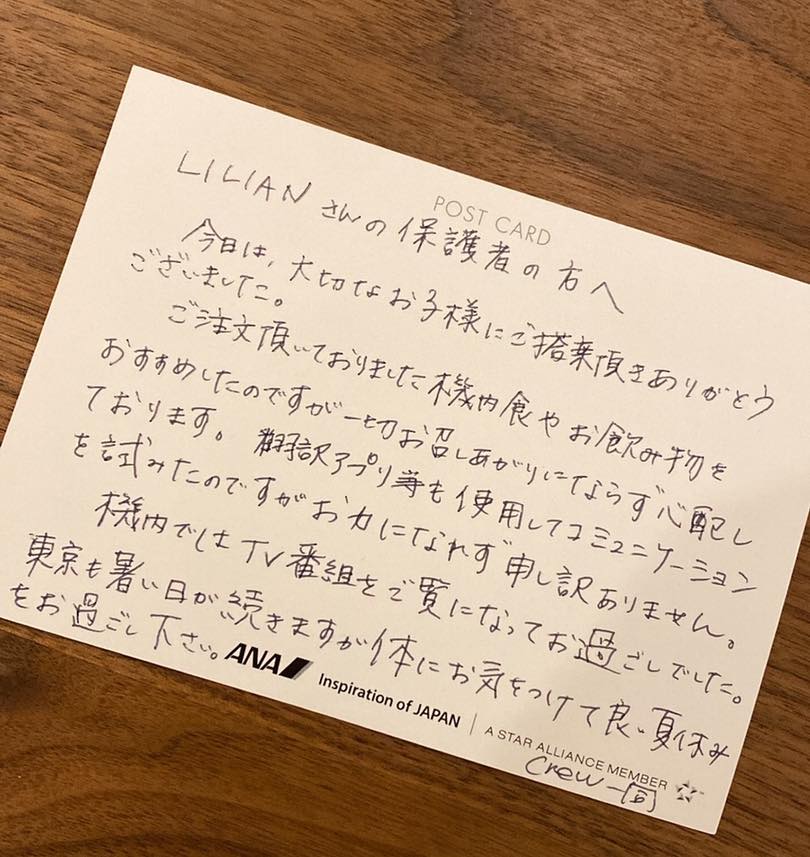 POST CARD
LILIAN さんの保護者の方へ
今日は、大切なお子様にご搭乗頂きありがとう
ございました。
ご注文頂いておりました機内食やお飲み物を
おすすめしたのですが一切お召しあがりにならず心配し
ております。翻訳アプリ等も使用してコミュニケーション
を試みたのですがお力になれず申し訳ありません。
機内ではTV番組をご覧になってお過ごしでした。
東京も暑い日が続きますが体にお気をつけて良い夏休み
をお過ごし下さい。
ANA Inspiration of JAPAN
A STAR ALLIANCE MEMBER
Crew一同